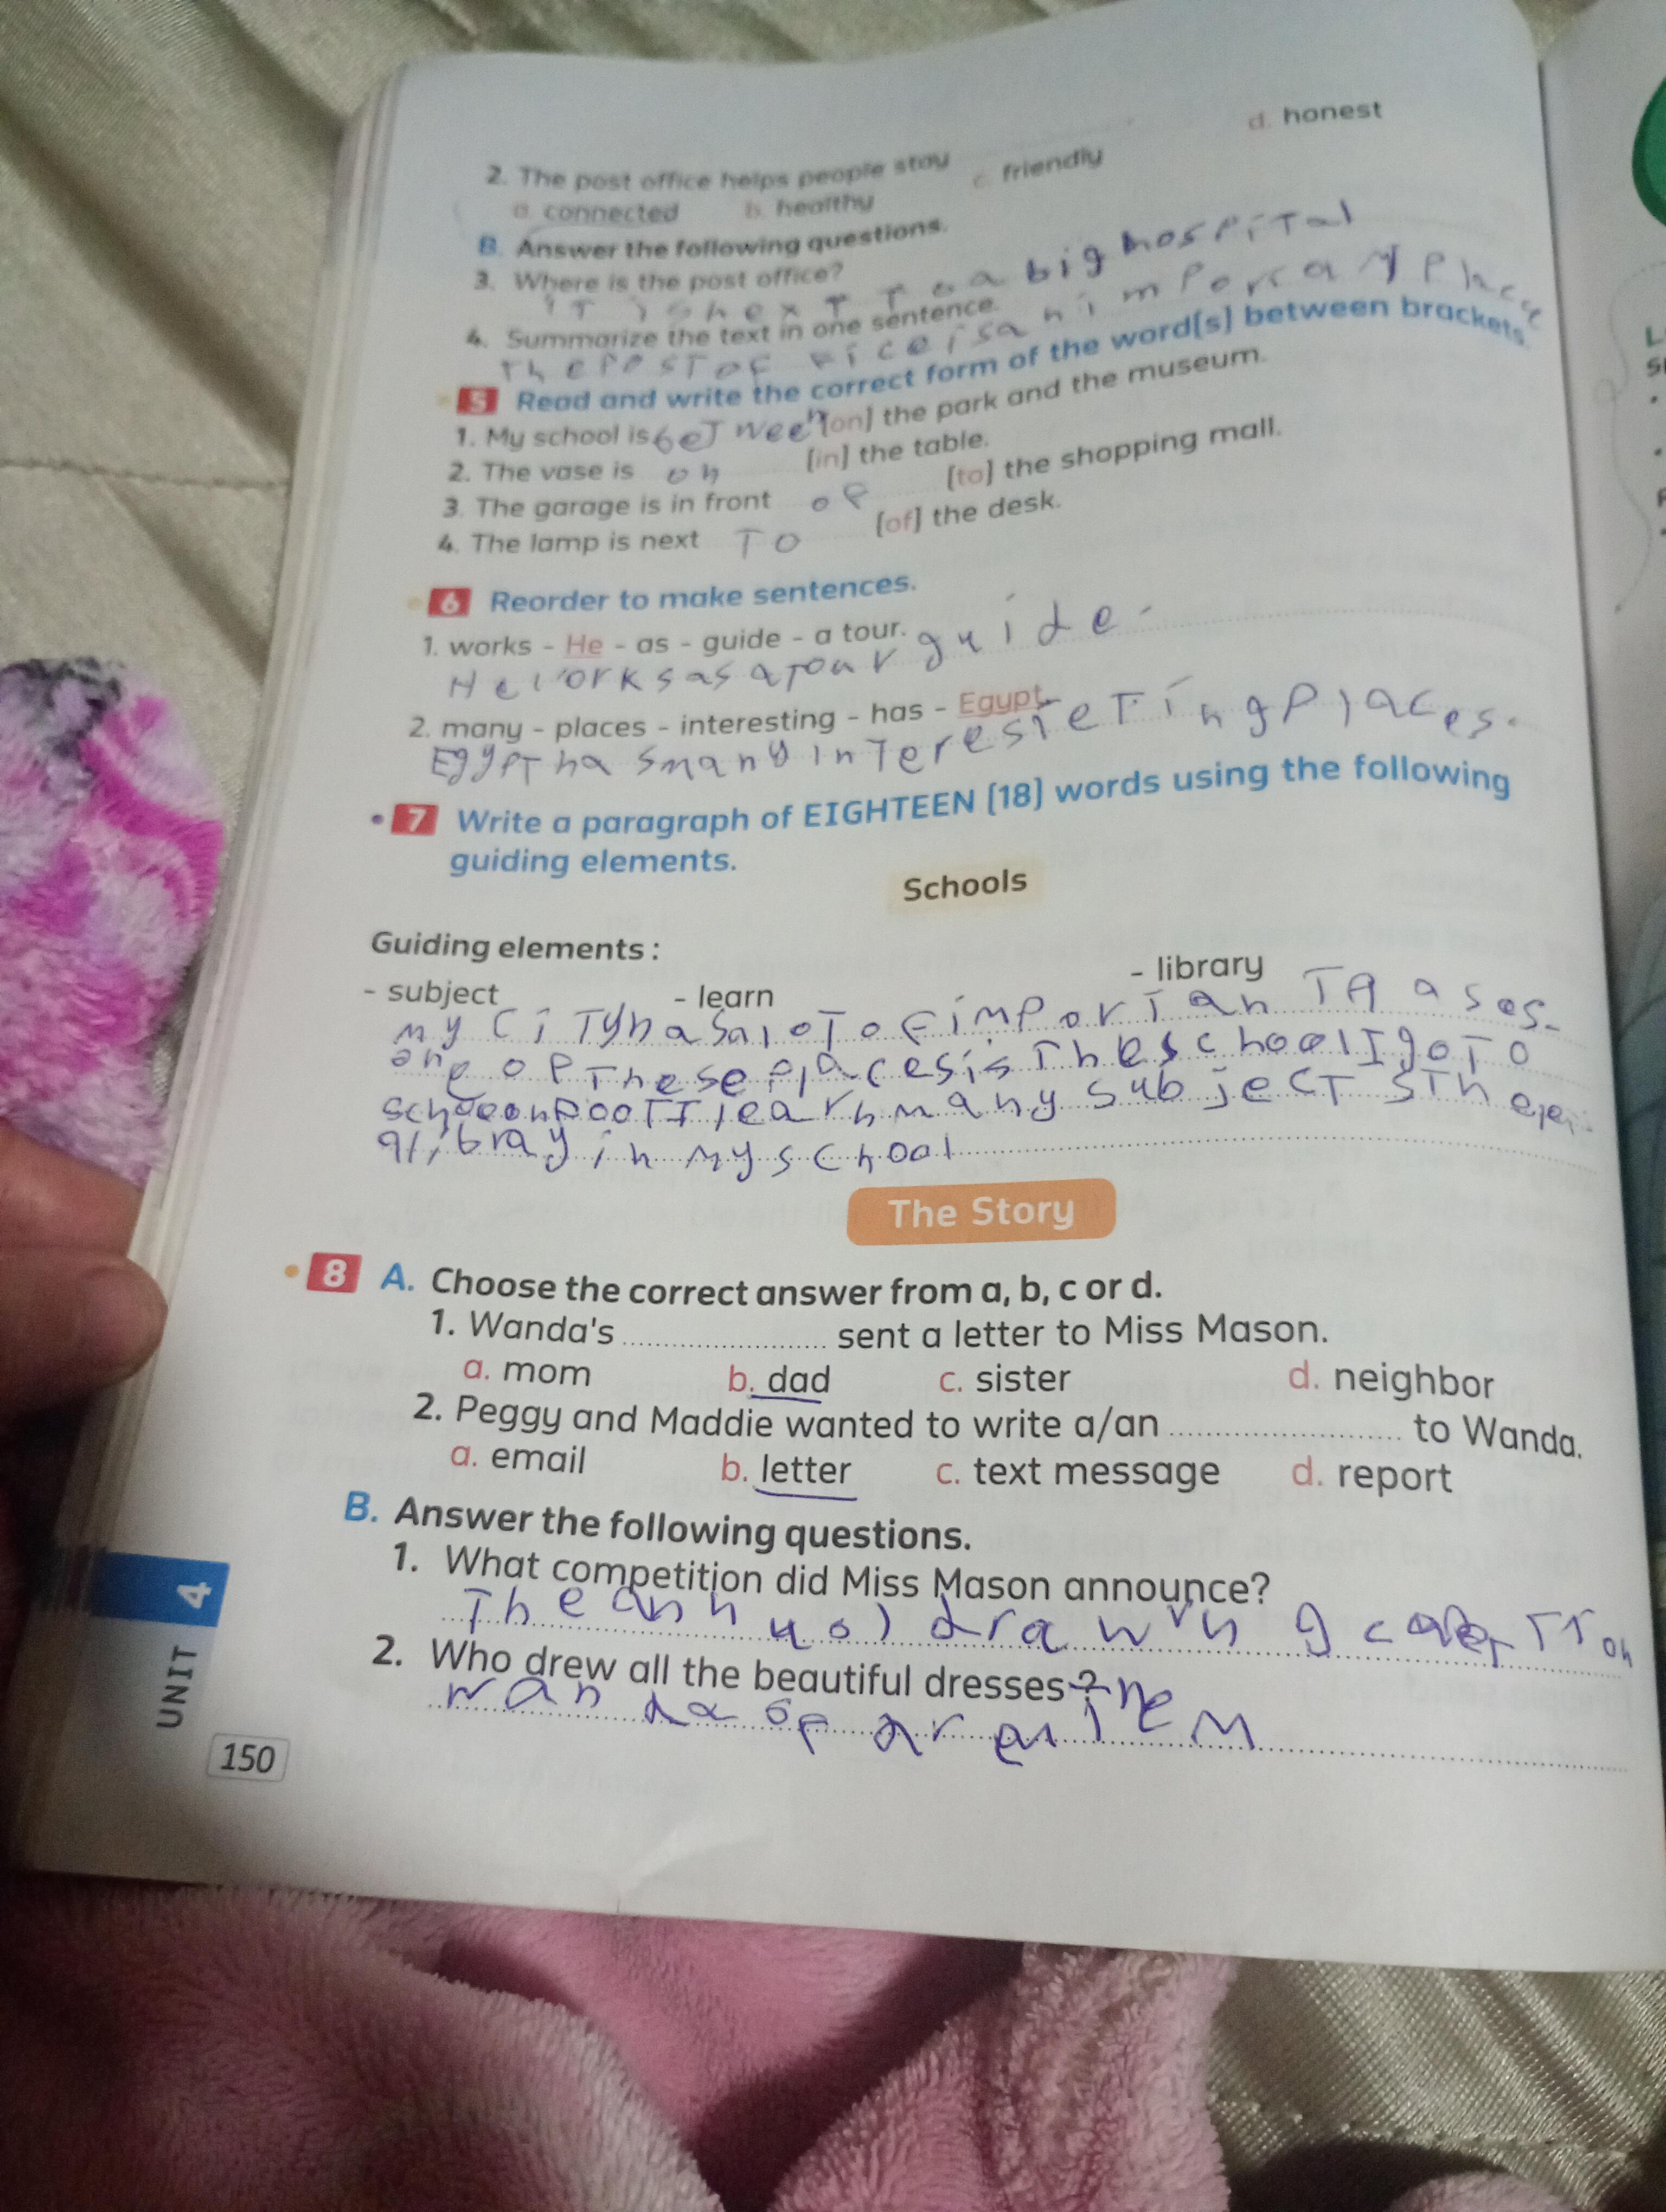 d. honest
2. The post office helps people stay
a. connected b. healthy c. friendly
B. Answer the following questions.
3. Where is the post office?
iT is nexT To a big hospiTal
4. Summarize the text in one sentence.
The posT office is an
5 Read and write the correct form of the word(s) between brackets.
1. My school is beTween (on) the park and the museum.
2. The vase is on (in) the table.
3. The garage is in front of (to) the shopping mall.
4. The lamp is next To (of) the desk.
6 Reorder to make sentences.
1. works - He - as - guide - a tour.
He works as a Tour guide.
2. many - places - interesting - has - Egypt
EgypT has many places.
7 Write a paragraph of EIGHTEEN (18) words using the following
guiding elements.
Schools
Guiding elements :
- subject - learn - library
my ciTy has a loT of
one of These places is The school I go To
I learn many subjecTs
in my school
The Story
8 A. Choose the correct answer from a, b, c or d.
1. Wanda's .................... sent a letter to Miss Mason.
a. mom b. dad c. sister d. neighbor
2. Peggy and Maddie wanted to write a/an .................... to Wanda.
a. email b. letter c. text message d. report
B. Answer the following questions.
1. What competition did Miss Mason announce?
The
2. Who drew all the beautiful dresses?
wanda
UNIT 4
150